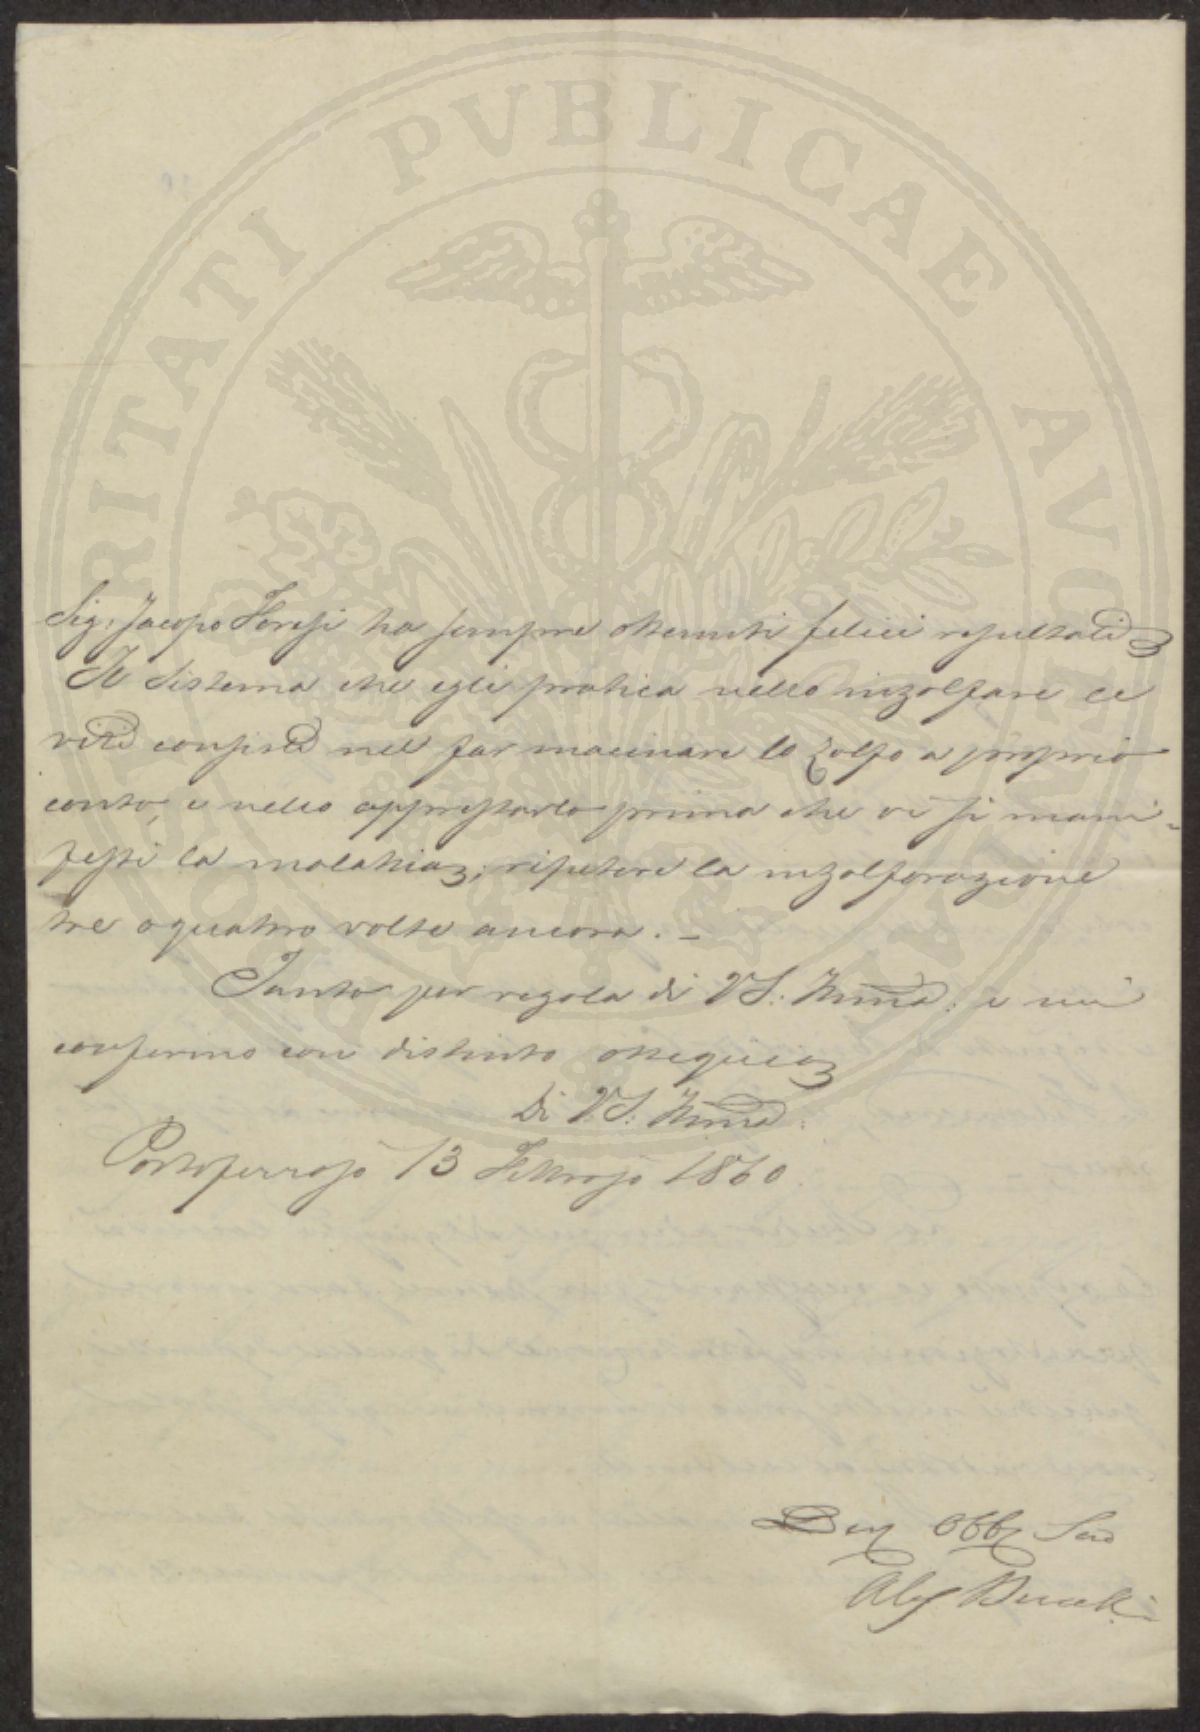 PROSPERITATI PUBLICAE AVGENDAE
Sig. Jacopo Foresi ha sempre ottenuti felici resultati
Il sistema che egli pratica nello inzolfare le
viti consiste nel far macinare lo zolfo a proprio
conto, e nello apprestarlo prima che vi si mani-
festi la malattia; ripetere la inzolforazione
tre o quattro volte ancora. –
Tanto per regola di VS: Illma: e mi
confermo con distinto ossequio
Di VS: Illma:
Portoferrajo 13 Febbrajo 1860.
Dev Obb Ser